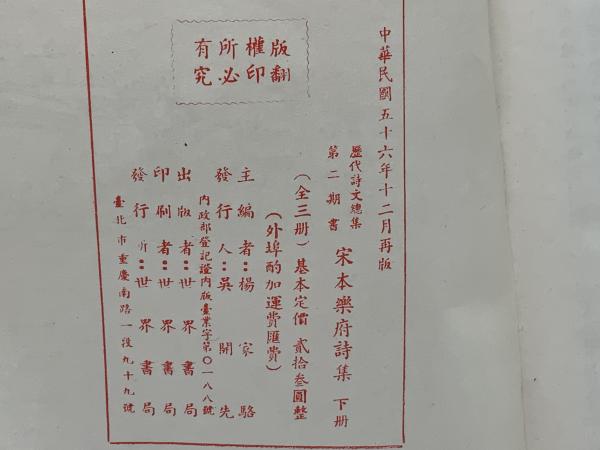 中華民國五十六年十二月再版
版權所有
翻印必究
歷代詩文總集
第二期書
宋本樂府詩集 下册
(全三册)基本定價 貳拾叁圓整
(外埠酌加運費匯費)
主編者:楊家駱
發行人:吳開先
內政部登記證內版臺業字第〇一八八號
出版者:世界書局
印刷者:世界書局
發行所:世界書局
臺北市重慶南路一段九十九號